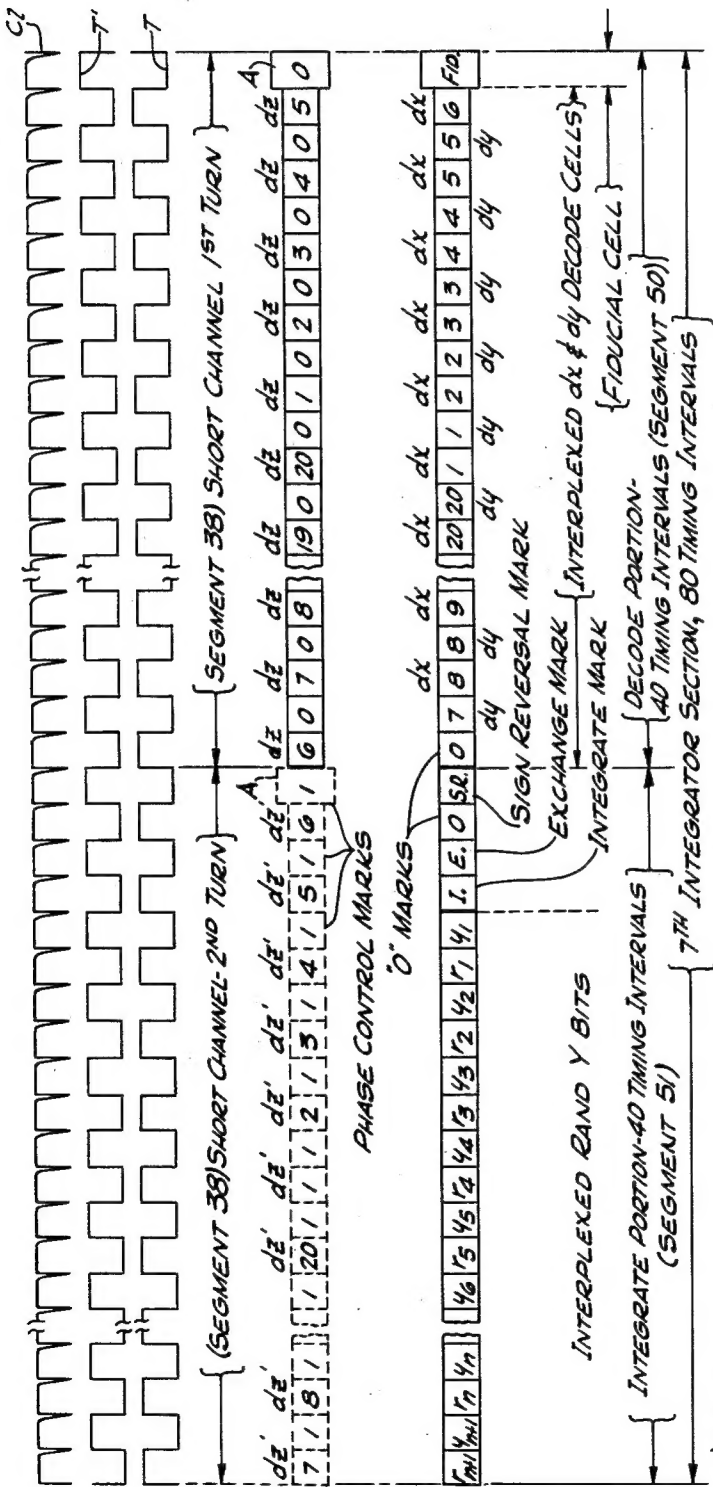 C2
T'
T
(SEGMENT 38) SHORT CHANNEL-2ND TURN
(SEGMENT 38) SHORT CHANNEL 1ST TURN
dz' dz' dz' dz' dz' dz' dz' dz' dz' dz dz dz dz dz dz dz dz dz dz
A A
7 1 8 1 1 20 1 1 1 2 1 3 1 4 1 5 1 6 1 6 0 7 0 8 19 0 20 0 1 0 2 0 3 0 4 0 5 0
PHASE CONTROL MARKS
"O" MARKS
dx dx dx dx dx dx dx dx dx
rn+1 yn+1 rn yn y6 r5 y5 r4 y4 r3 y3 r2 y2 r1 y1 I. E. O S.R. O 7 8 8 9 20 20 1 1 2 2 3 3 4 4 5 5 6 FID.
dy dy dy dy dy dy dy dy
SIGN REVERSAL MARK
EXCHANGE MARK
INTEGRATE MARK
INTERPLEXED dx & dy DECODE CELLS
FIDUCIAL CELL
INTERPLEXED R AND Y BITS
DECODE PORTION-
40 TIMING INTERVALS (SEGMENT 50)
INTEGRATE PORTION-40 TIMING INTERVALS
(SEGMENT 51)
7TH INTEGRATOR SECTION, 80 TIMING INTERVALS